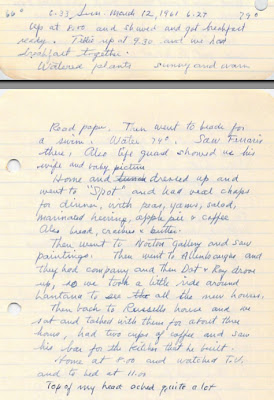 66° C-33 Sun. March 12, 1961 6:27 79°
Up at 8:00 and shower and got breakfast
ready. Tettie up at 9:30 and we had
breakfast together.
Watered plants sunny and warm
Read paper. Then went to beach for
a swim. Water 74°. Saw Farraris
there. Also life guard showed us his
wife and baby picture
Home and dressed up and
went to "Spot" and had veal chops
for dinner, with peas, yams, salad,
marinated herring, apple pie & coffee
Also bread, crackers & butter.
Then went to Norton Gallery and saw
paintings. Then went to Allenbaughs and
they had company and then Dot & Ray drove
up, so we took a little ride around
Lantana to see all the new houses.
Then back to Russells house and we
sat and talked with them for about three
hours, had two cups of coffee and saw
his bar for the kitchen that he built.
Home at 8:00 and watched T.V.
and to bed at 11:00
Top of my head ached quite a lot